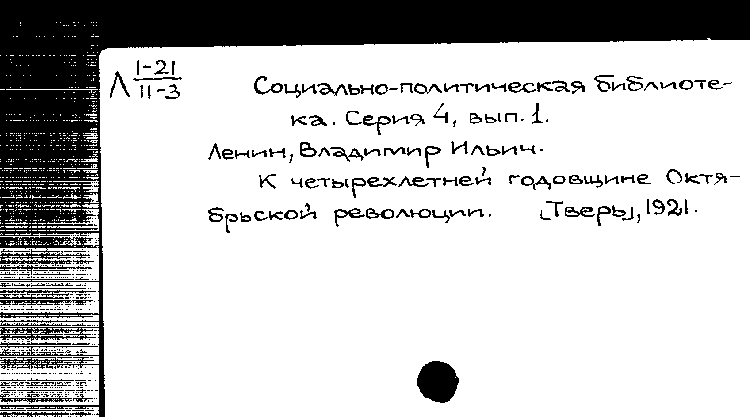 Л 1-21
11-3
Социально-политическая библиоте-
ка. Серия 4, вып. 1.
Ленин, Владимир Ильич.
К четырехлетней годовщине Октя-
брьской революции. [Тверь], 1921.